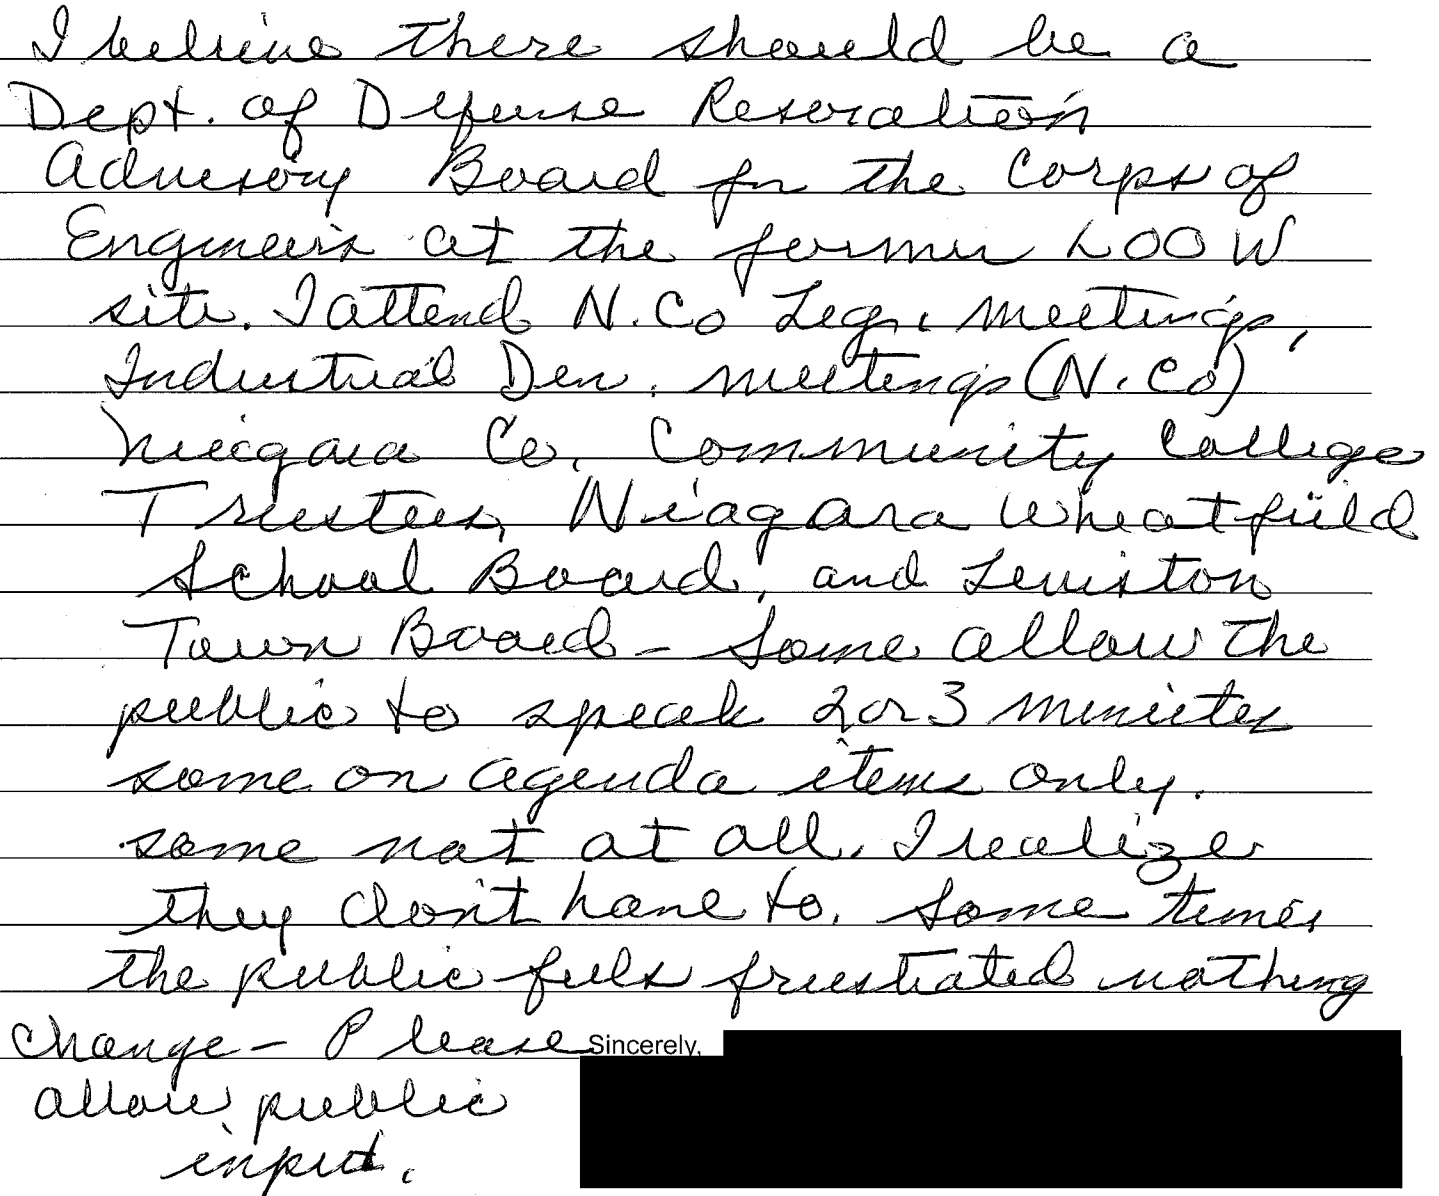 I believe there should be a
Dept. of Defense Resoration
Advisory Board for the Corps of
Engineers at the former LOOW
site. I attend N. Co Leg. meetings,
Industrial Dev. meetings (N. Co)
Niagara Co. Community College
Trustees, Niagara Wheatfield
School Board, and Lewiston
Town Board - Some allow the
public to speak 2 or 3 minutes
some on agenda items only.
some not at all. I realize
they don't have to. Some times
the public feels frustrated nothing
change - Please Sincerely,
allow public
input.